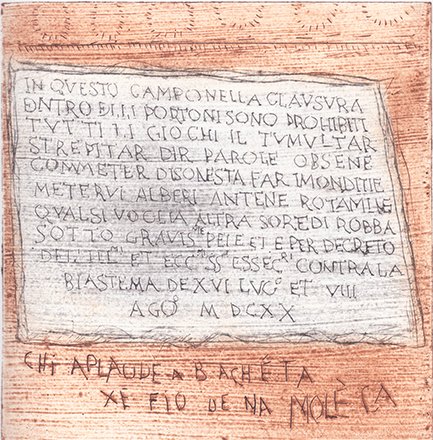 IN QVESTO CAMPO NELLA CLAVSVRA
DNTRO DELLI PORTONI SONO PROHIBITI
TVTTI LI GIOCHI IL TVMVLTAR
STREPITAR DIR PAROLE OBSENE
COMMETER DISONESTA FAR IMONDITIE
METERVI ALBERI ANTENE ROTAMI ET
QVALSIVOGLIA ALTRA SORE DI ROBBA
SOTTO GRAVISme PENE ET E PER DECRETO
ET ECCmi SSri ESSECRI CONTRA LA
BIASTEMA DE XVI LVGo ET VIII
AGo M DCXX
CHI APLAUDE A BACHÉTA
XE FIO DE NA MOLÈCA